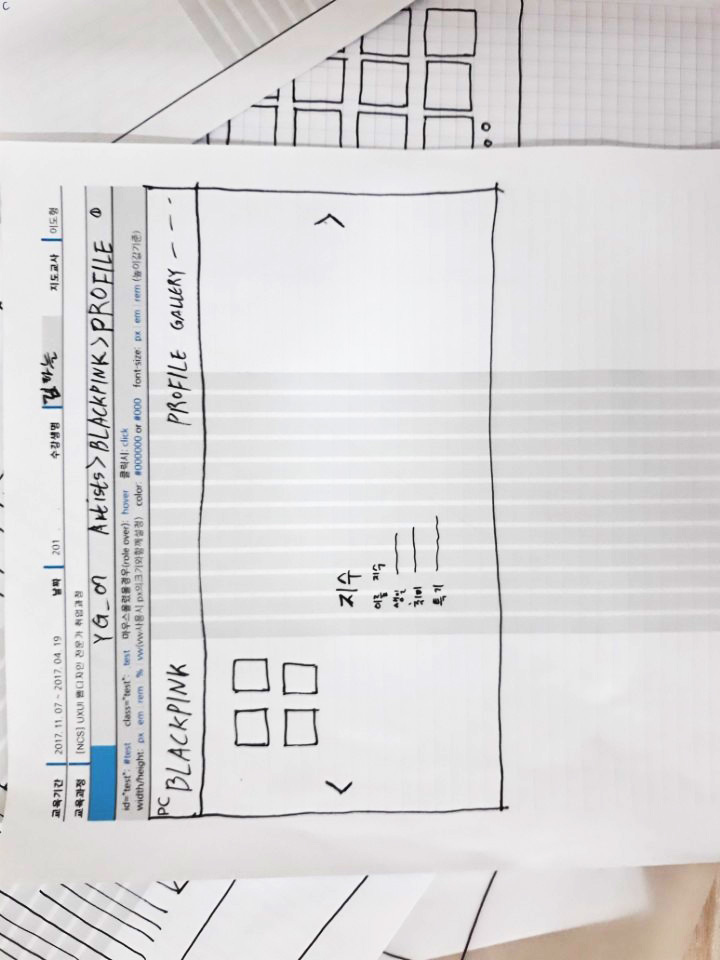 교육기간 2017. 11. 07 ~ 2017. 04. 19 날짜 201 . . 수강생명 김하늘 지도교사 이도형
교육과정 [NCS] UXUI 웹디자인 전문가 취업과정
YG_on Artists>BLACKPINK>PROFILE ①
id="test": #test class="test": .test 마우스올렸을경우(role over): hover 클릭시: click
width/height: px em rem % vw(vw사용시 px의크기와함께설정) color: #000000 or #000 font-size: px em rem (높이값기준)
PC
BLACKPINK PROFILE GALLERY
< >
지수
이름 지수
생일
취미
특기